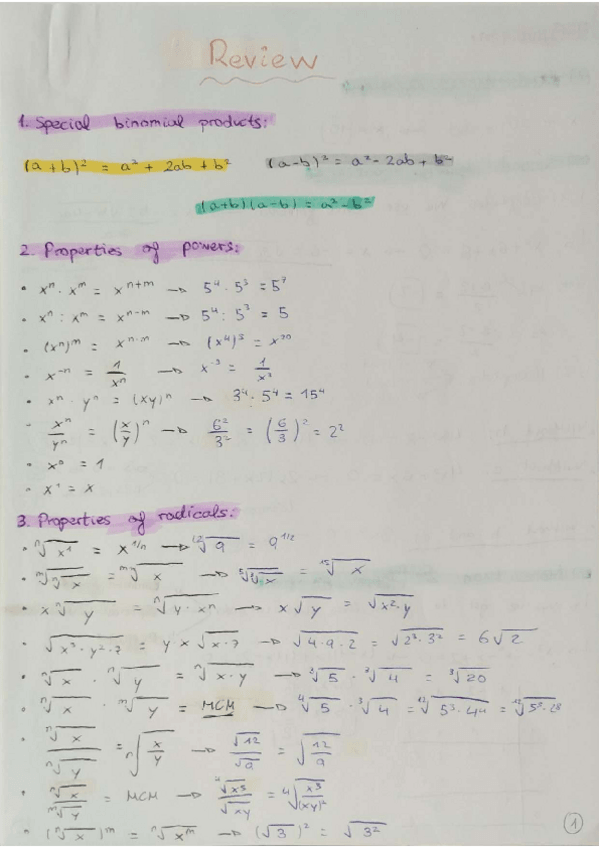 Review
1. Special binomial products:
(a+b)² = a² + 2ab + b² (a-b)² = a² - 2ab + b²
(a+b)(a-b) = a² - b²
2. Properties of powers:
• xⁿ · xᵐ = xⁿ⁺ᵐ → 5⁴ · 5³ = 5⁷
• xⁿ : xᵐ = xⁿ⁻ᵐ → 5⁴ : 5³ = 5
• (xⁿ)ᵐ = xⁿ·ᵐ → (x⁴)³ =
• x⁻ⁿ = 1/xⁿ → x⁻³ = 1/x³
• xⁿ · yⁿ = (xy)ⁿ → 3⁴ · 5⁴ = 15⁴
• xⁿ/yⁿ = (x/y)ⁿ → 6²/3² = (6/3)² = 2²
• x⁰ = 1
• x¹ = x
3. Properties of radicals:
• ⁿ√x¹ = x^1/n → ²√9 = 9^1/2
• ᵐ√ⁿ√x = ᵐⁿ√x → ⁵√³√x = ¹⁵√x
• x ⁿ√y = ⁿ√y · xⁿ → x√y = √x² · y
• √x³ · y² · 7 = y x √x · 7 → √4 · 9 · 2 = √2³ · 3² = 6√2
• ⁿ√x · ⁿ√y = ⁿ√x · y → ³√5 · ³√4 = ³√20
• ⁿ√x · ᵐ√y = MCM → ⁴√5 · ³√4 = ¹²√5³ · 4⁴ =
• ⁿ√x / ⁿ√y = ⁿ√x/y → √12 / √9 = √12/9
• ⁿ√x / ᵐ√y = MCM → ⁴√x³ / √xy = ⁴√x³/(xy)²
• (ⁿ√x)ᵐ = ⁿ√xᵐ → (√3)² = √3²
1